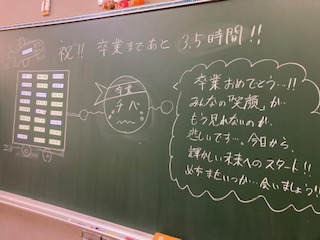 祝!! 卒業まであと 3.5時間!!
卒業
チバ
卒業おめでとう…!!
みんなの"笑顔"が…
もう見れないのが
悲しいです…。今日から、
輝かしい未来へのスタート!!
必ずまたいつか…会いましょう!!